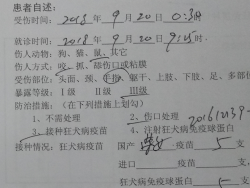 患者自述:
受伤时间: 2018 年 9 月 20 日 0:30
就诊时间: 2018 年 9 月 20 日 9:25 时.
伤人动物: 狗、猫、鼠、其它
伤人方式: 咬、抓、舔伤口或粘膜
受伤部位: 头面、颈、手指、躯干、上肢、下肢、足、多部位
暴露等级: I 级 II 级 III级
防治措施: (在下列措施上划勾)
1、不需处理 2、伤口处理 20161239-
3、接种狂犬病疫苗 4、注射狂犬病免疫球蛋白
接种情况: 狂犬病疫苗 国产 疫苗 5 支
进口 疫苗 支
狂犬病免疫球蛋白 5 支